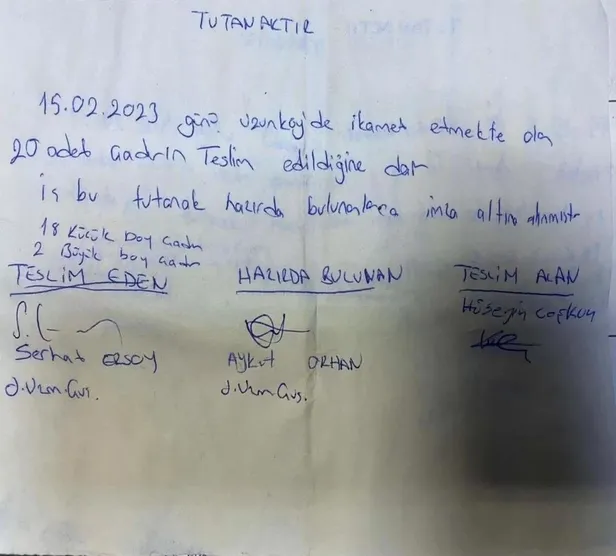 TUTANAKTIR
15.02.2023 günü Uzunköy'de ikamet etmekte olan
20 adet çadırın Teslim edildiğine dair
iş bu tutanak hazırda bulunanlarca imza altına alınmıştır
18 Küçük boy çadır
2 Büyük boy çadır
TESLİM EDEN HAZIRDA BULUNAN TESLİM ALAN
Hüseyin Coşkun
Serhat ERSOY Aykut ORHAN
J.Uzm.Çvş. J.Uzm.Çvş.